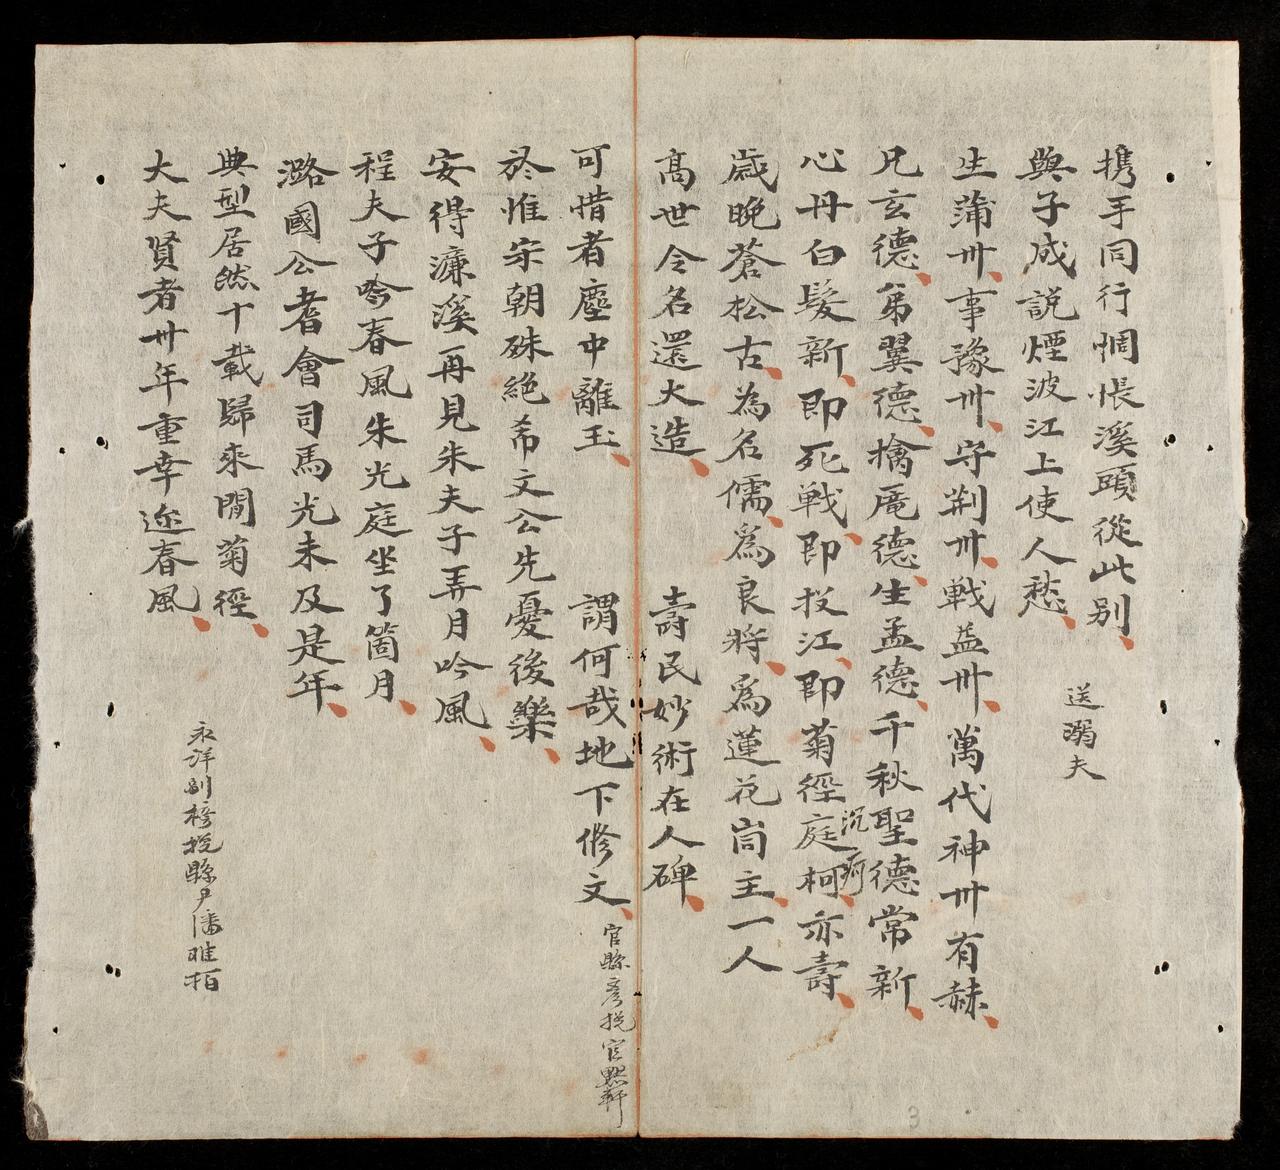 携手同行惆悵溪頭從此别
與子成説煙波江上使人愁
送溺夫
生蒲卅事豫卅守荆卅戰益卅萬代神卅有赫
兄玄德弟翼德擒厖德生孟德千秋聖德常新
心丹白髮新即死戦即投江即菊徑庭柯亦壽
沉痾
歲晚蒼松古為名儒爲良將爲蓮花峝主一人
髙世令名還大造
壽民妙術在人碑
可惜者塵中離玉
謂何哉地下修文
官縣彦挽官黙軒
於惟宋朝殊絶希文公先憂後樂
安得濂溪再見朱夫子弄月吟風
程夫子吟春風朱光庭坐了箇月
潞國公耆會司馬光未及是年
典型居然十載歸來閒菊徑
大夫賢者卅年重幸迩春風
永洋副榜挽縣尹潘